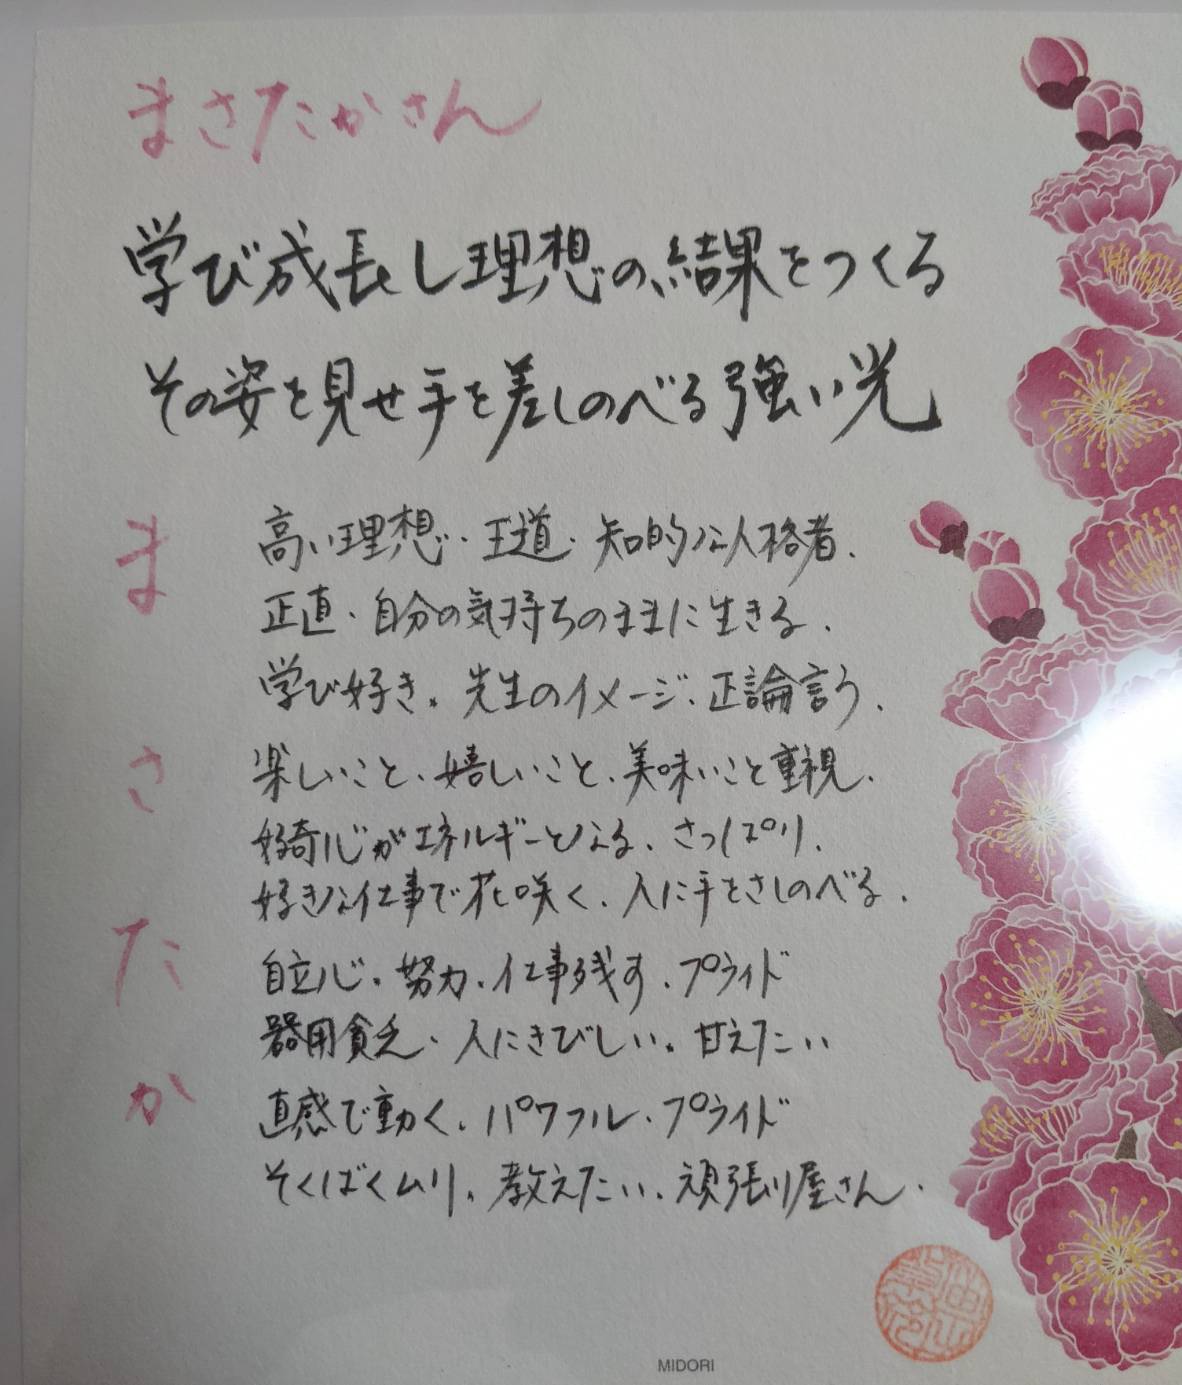 まさたかさん
学び成長し理想の結果をつくる
その姿を見せ手を差しのべる強い光
ま
高い理想、王道、知的な人格者、
正直、自分の気持ちのままに生きる、
学び好き。先生のイメージ、正論言う、
さ
楽しいこと、嬉しいこと、美味いこと重視、
好奇心がエネルギーとなる、さっぱり、
好きな仕事で花咲く、人に手をさしのべる、
た
自立心、努力、仕事残す、プライド
器用貧乏、人にきびしい。甘えたい
か
直感で動く、パワフル、プライド
そくばくムリ。教えたい、頑張り屋さん、
MIDORI